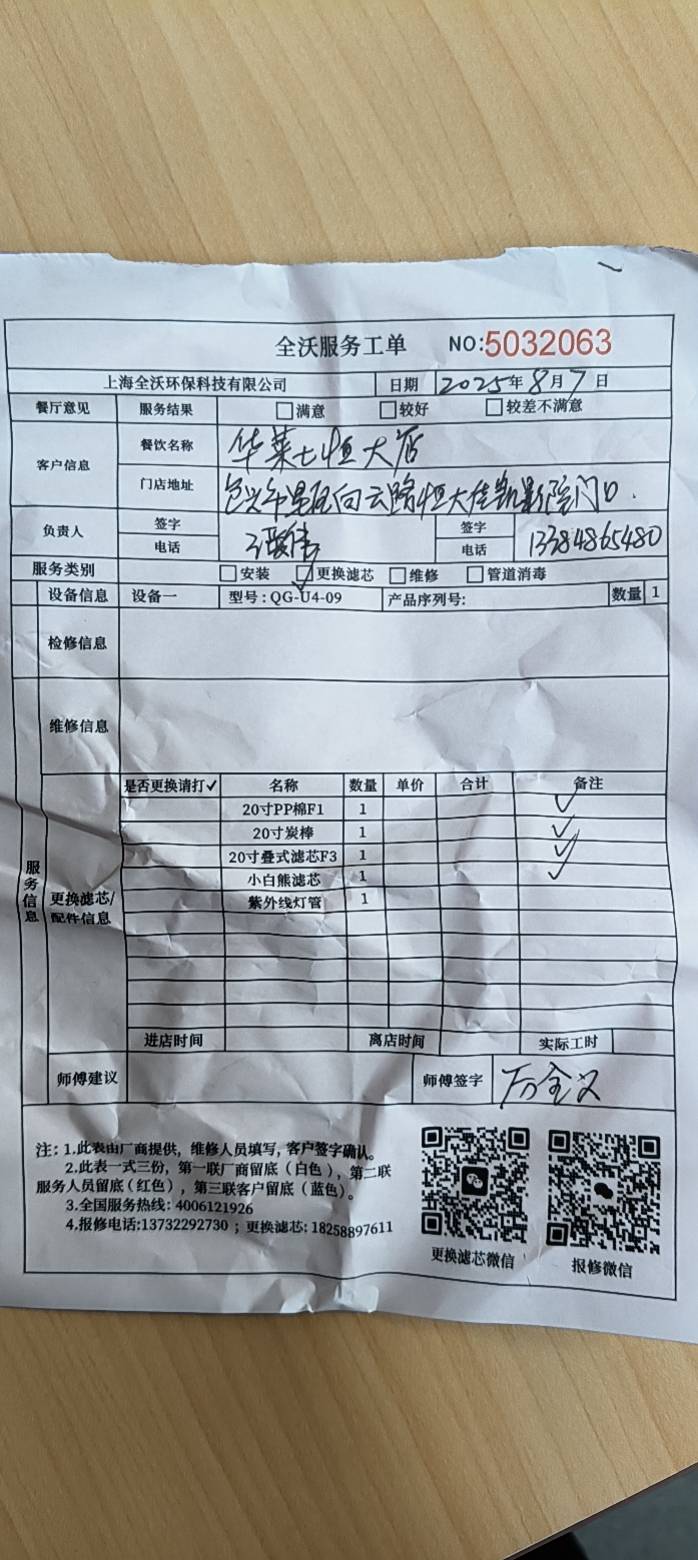 全沃服务工单 NO:5032063
上海全沃环保科技有限公司 日期 2025年8月7日
餐厅意见 服务结果 □满意 □较好 □较差不满意
客户信息 餐饮名称 华莱士恒大店
门店地址 恒大佳凯影院门口.
负责人 签字 签字
电话 电话 13384865480
服务类别 □安装 □✓更换滤芯 □维修 □管道消毒
设备信息 设备一 型号:QG-U4-09 产品序列号: 数量 1
检修信息
维修信息
服务信息
更换滤芯/配件信息
是否更换请打✓ 名称 数量 单价 合计 备注
20寸PP棉F1 1 ✓
20寸炭棒 1 ✓
20寸叠式滤芯F3 1 ✓
小白熊滤芯 1 ✓
紫外线灯管 1
进店时间 离店时间 实际工时
师傅建议 师傅签字
注: 1.此表由厂商提供，维修人员填写，客户签字确认。
2.此表一式三份，第一联厂商留底（白色），第二联
服务人员留底（红色），第三联客户留底（蓝色）。
3.全国服务热线: 4006121926
4.报修电话:13732292730 ; 更换滤芯: 18258897611
更换滤芯微信 报修微信